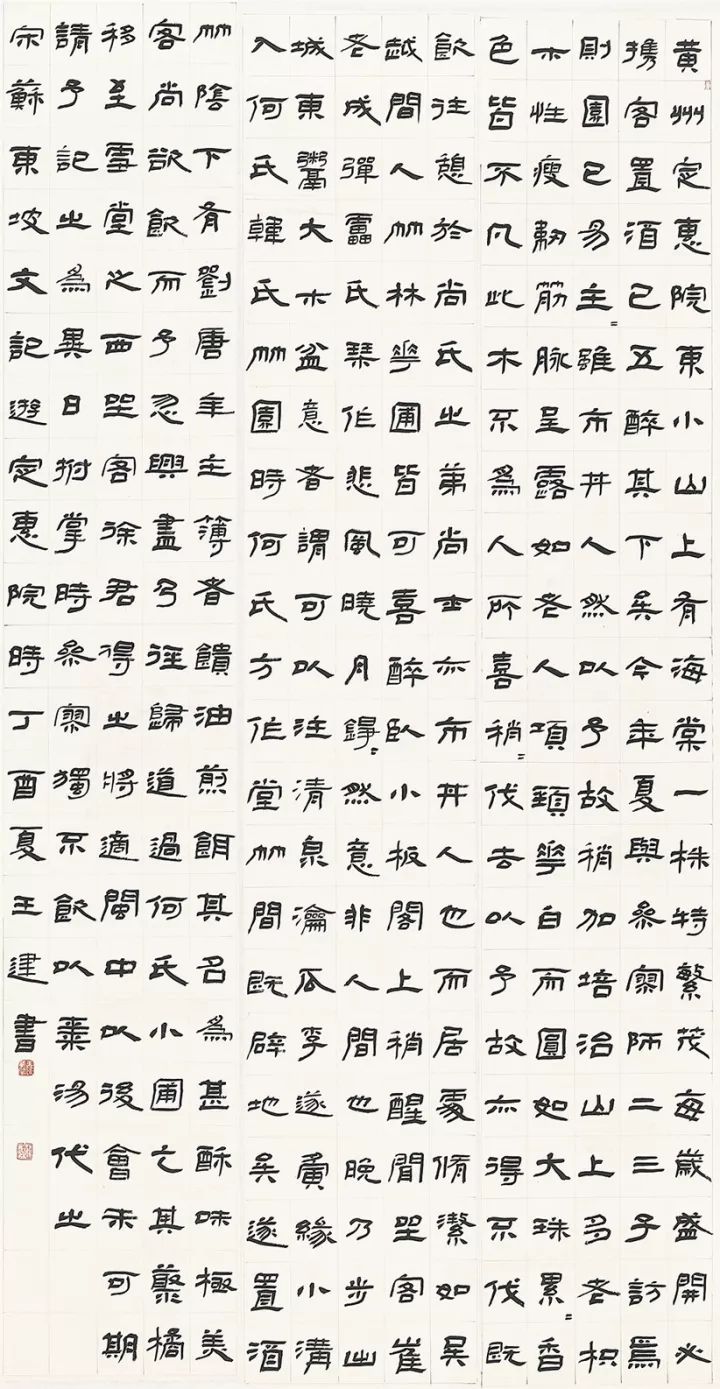 黃州定惠院東小山上有海棠一株特繁茂每歲盛開必
携客置酒已五醉其下矣今年夏與參寥師二三子訪焉
則園已易主〻雖市井人然以予故稍加培治山上多老枳
木性瘦韌筋脉呈露如老人項頸花白而圓如大珠累〻香
色皆不凡此木不為人所喜稍〻伐去以予故亦得不伐既
飲往憩於尚氏之第尚亦市井人也而居處脩潔如吳
越間人竹林花圃皆可喜醉臥小板閣上稍醒聞坐客崔
老成彈雷氏琴作悲風曉月錚〻然意非人間也晚乃步出
城東鬻大木盆意者謂可以注清泉瀹瓜李遂夤緣小溝
入何氏韓氏竹園時何氏方作堂竹間既辟地矣遂置酒
竹陰下有劉唐年主簿者饋油煎餌其名為甚酥味極美
客尚欲飲而予忽興盡乃徑歸道過何氏小圃乞其藂橘
移至雪堂之西坐客徐君得之將適閩中以後會未可期
請予記之為異日拊掌時參寥獨不飲以棗湯代之
宋蘇東坡文記遊定惠院時丁酉夏王建書